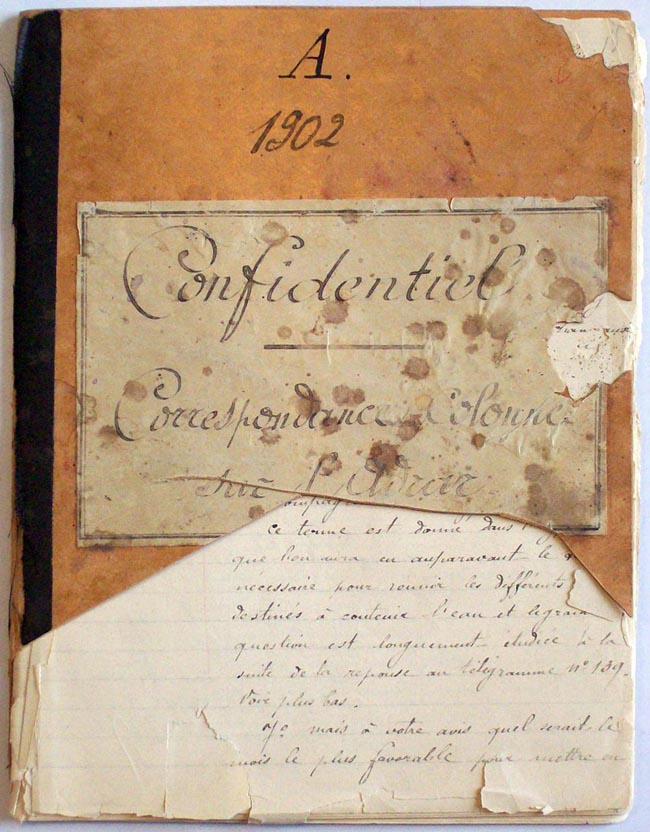 A.
1902
Confidentiel
Correspondance Colonne
sur l'Adrar
ce terme est donné dans
que l'on aura eu auparavant le
necessaire pour reunir les différents
destinés à contenir l'eau et le grain
question est longuement étudiée à la
suite de la reponse au télégramme nº 139.
Voir plus bas.
7º mais à votre avis quel serait le
mois le plus favorable pour mettre en